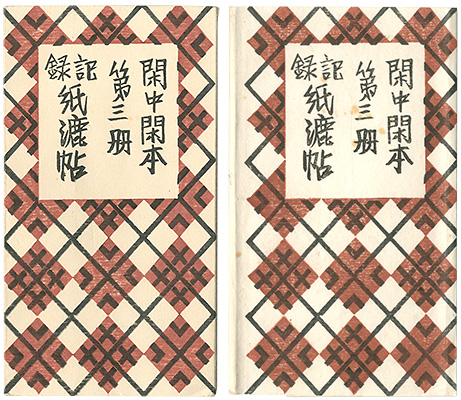 閑中閑本
第三册
記録
紙漉帖
閑中閑本
第三册
記録
紙漉帖